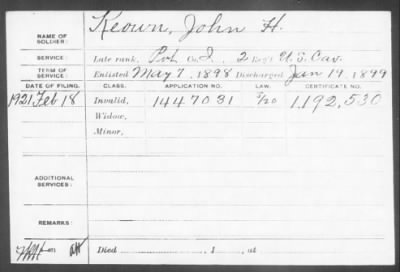 NAME OF SOLDIER: Keown, John H.
SERVICE: Late rank, Pvt. Co. I, 2 Reg't U.S. Cav.
TERM OF SERVICE: Enlisted May 7, 1898 Discharged Jan 19, 1899
DATE OF FILING. CLASS. APPLICATION NO. LAW. CERTIFICATE NO.
1921 Feb 18 Invalid, 1447031 1,192,530
Widow,
Minor,
ADDITIONAL SERVICES:
REMARKS:
Died , 1 , at